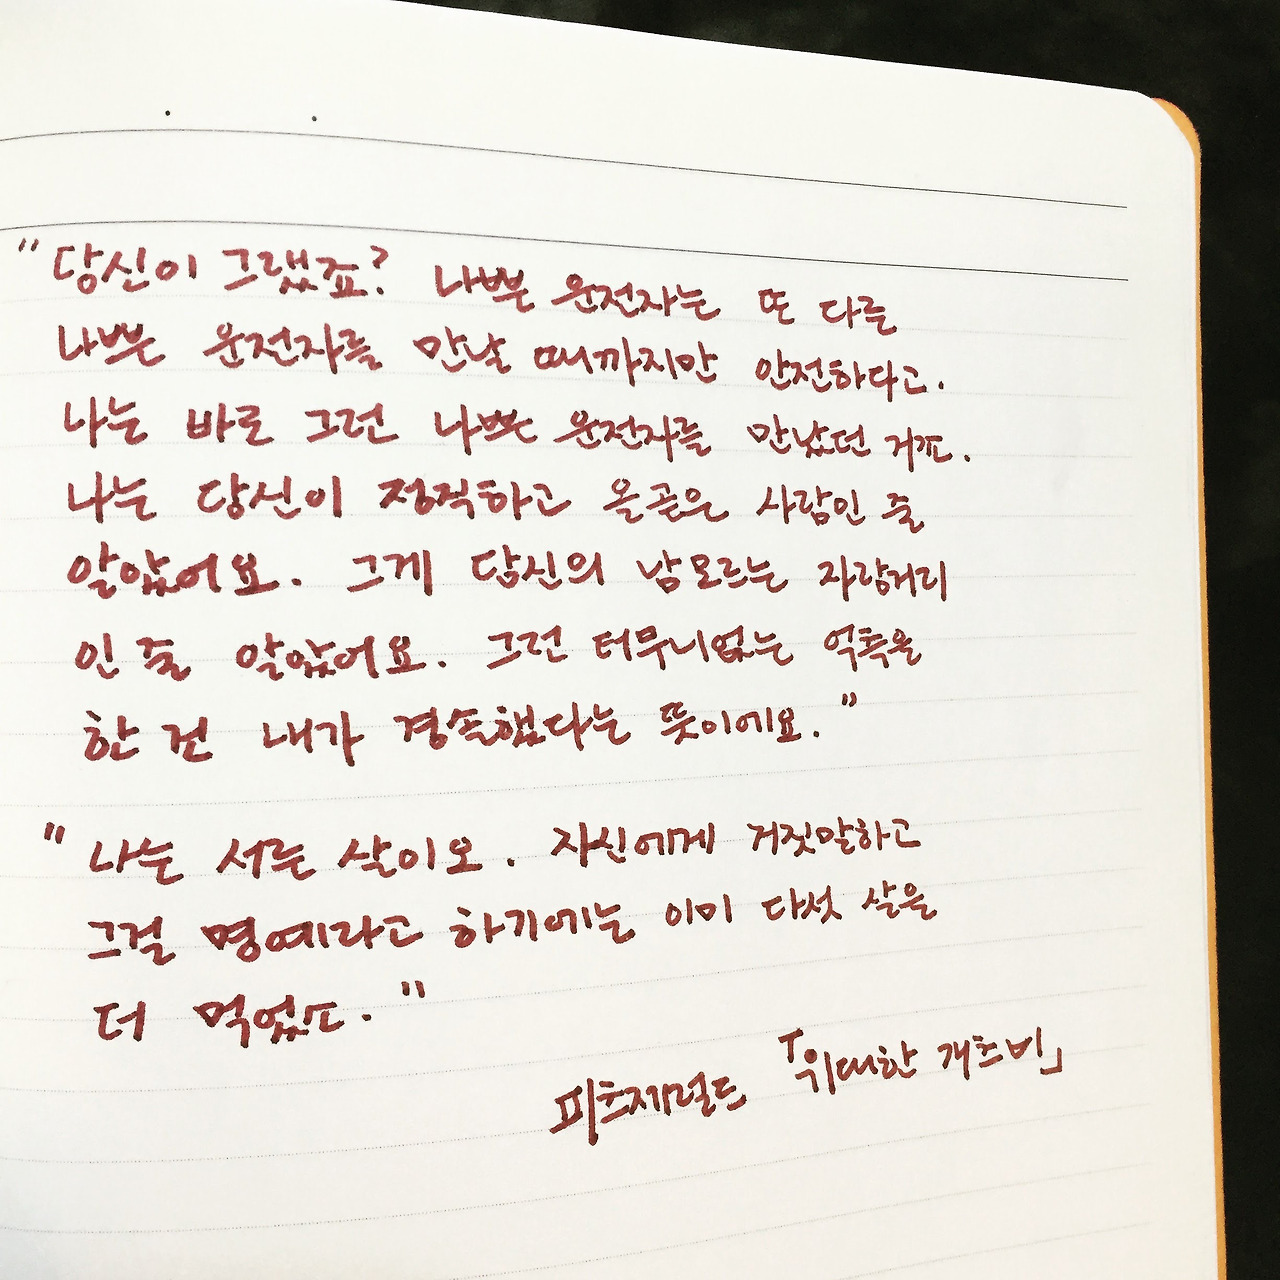 "당신이 그랬죠? 나쁜 운전자는 또 다른
나쁜 운전자를 만날 때까지만 안전하다고.
나는 바로 그런 나쁜 운전자를 만났던 거죠.
나는 당신이 정직하고 올곧은 사람인 줄
알았어요. 그게 당신의 남모르는 자랑거리
인 줄 알았어요. 그런 터무니없는 억측을
한 건 내가 경솔했다는 뜻이에요."
"나는 서른 살이오. 자신에게 거짓말하고
그걸 명예라고 하기에는 이미 다섯 살을
더 먹었소."
피츠제럴드 「위대한 개츠비」